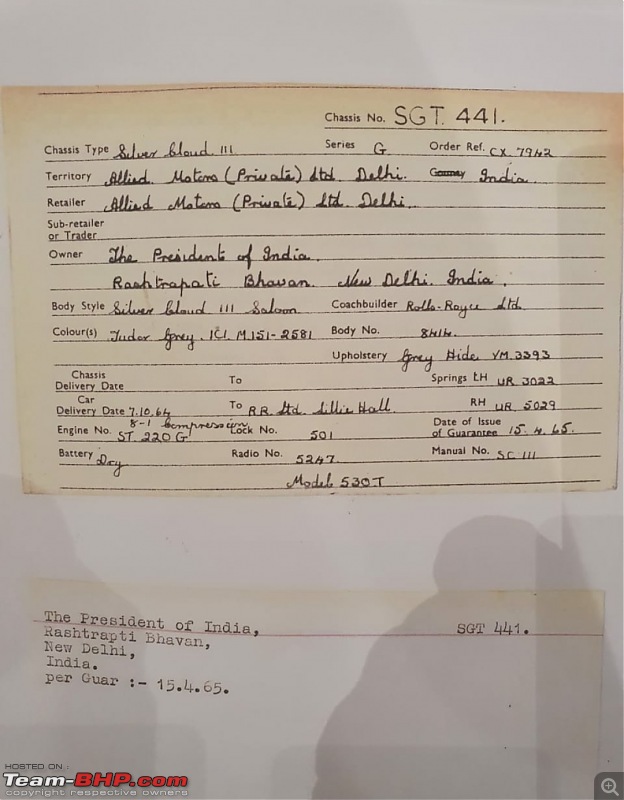 Chassis No. SGT. 441.
Chassis Type Silver Cloud III Series G Order Ref. CX 7942
Territory Allied Motors (Private) Ltd. Delhi. India.
Retailer Allied Motors (Private) Ltd. Delhi.
Sub-retailer
or Trader
Owner The President of India.
Rashtrapati Bhavan. New Delhi. India.
Body Style Silver Cloud III Saloon Coachbuilder Rolls-Royce Ltd.
Colour(s) Tudor Grey. ICI. M.151-2581 Body No. 8414.
Upholstery Grey Hide VM.3393
Chassis
Delivery Date To Springs LH UR 3022
Car
Delivery Date 7.10.64 To R.R. Ltd. Lillie Hall. RH UR 5029
8-1 Compression
Engine No. ST. 220 G Lock No. 501 Date of Issue
of Guarantee 15.4.65.
Battery Dry Radio No. 5247. Manual No. SC III
Model 530T
The President of India, SGT 441.
Rashtrapti Bhavan,
New Delhi,
India.
per Guar :- 15.4.65.
HOSTED ON :
Team-BHP.com
copyright respective owners